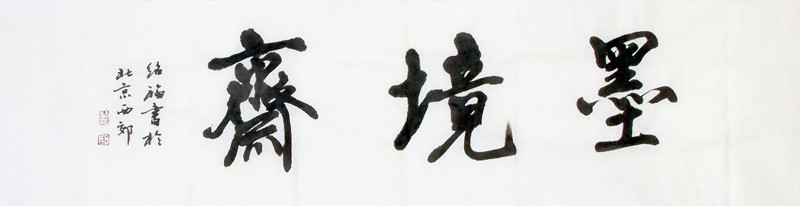 墨境齋
紹福書於
北京西郊